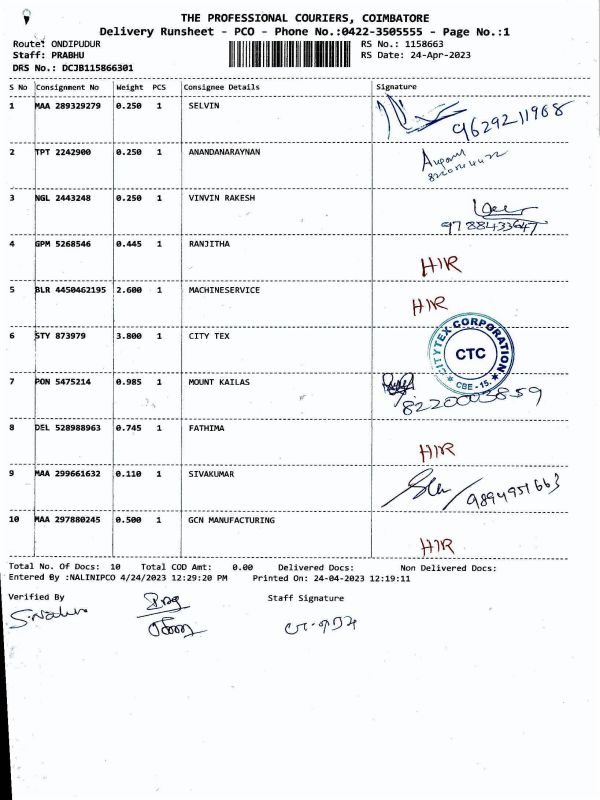 THE PROFESSIONAL COURIERS, COIMBATORE
Delivery Runsheet - PCO - Phone No.:0422-3505555 - Page No.:1
Route: ONDIPUDUR RS No.: 1158663
Staff: PRABHU RS Date: 24-Apr-2023
DRS No.: DCJB115866301
S No Consignment No Weight PCS Consignee Details Signature
1 MAA 289329279 0.250 1 SELVIN
9629211968
2 TPT 2242900 0.250 1 ANANDANARAYNAN
3 NGL 2443248 0.250 1 VINVIN RAKESH
9788433647
4 GPM 5268546 0.445 1 RANJITHA
HIR
5 BLR 4450462195 2.600 1 MACHINESERVICE
HIR
6 STY 873979 3.800 1 CITY TEX
CITYTEX CORPORATION
CTC
* CBE - 15. *
7 PON 5475214 0.985 1 MOUNT KAILAS
8220003859
8 DEL 528988963 0.745 1 FATHIMA
HIR
9 MAA 299661632 0.110 1 SIVAKUMAR
9894951663
10 MAA 297880245 0.500 1 GCN MANUFACTURING
HIR
Total No. Of Docs: 10 Total COD Amt: 0.00 Delivered Docs: Non Delivered Docs:
Entered By :NALINIPCO 4/24/2023 12:29:20 PM Printed On: 24-04-2023 12:19:11
Verified By Staff Signature